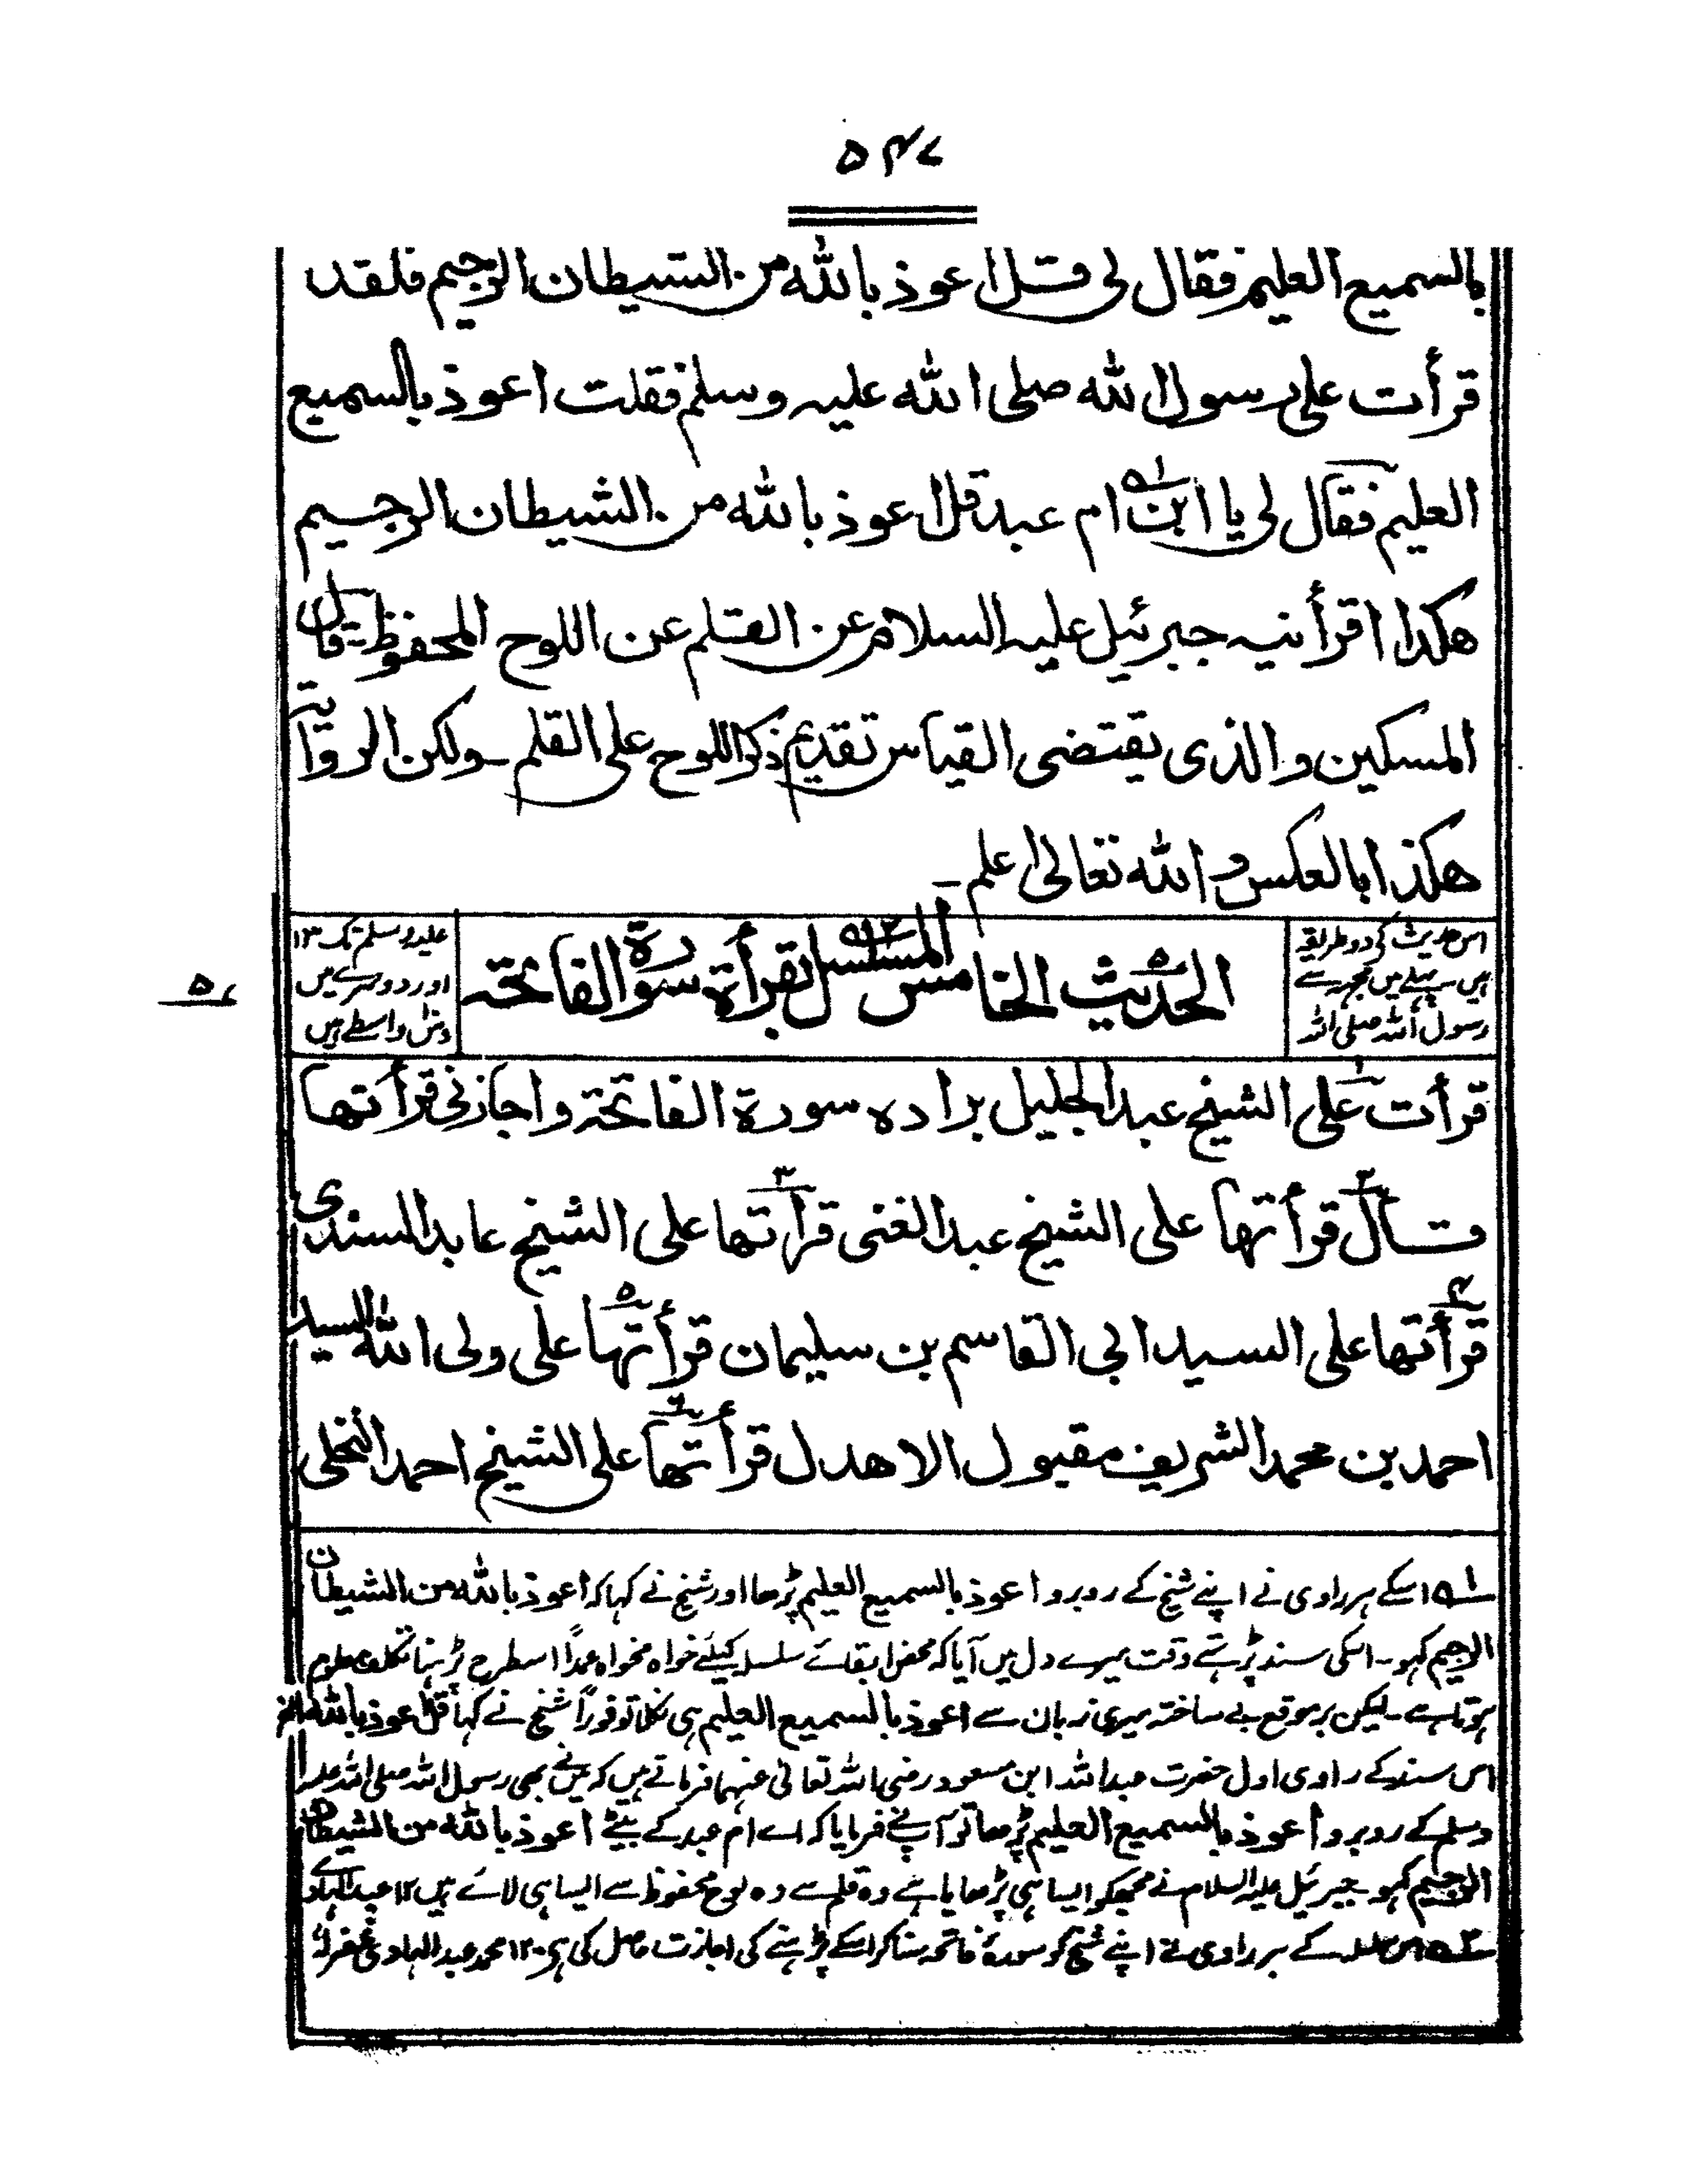 ۵۴۷
بالسميع العليم فقال لى قل اعوذ بالله من الشيطان الرجيم فلقد
قرأت على رسول الله صلى الله عليه وسلم فقلت اعوذ بالسميع
العليم فقال لى يا ابن ام عبد قل اعوذ بالله من الشيطان الرجيم
هكذا اقرأنيه جبرئيل عليه السلام عن القلم عن اللوح المحفوظ- قال
المسكين والذى يقتضى القياس تقديم ذكر اللوح على القلم - ولكن الرواية
هكذا بالعكس والله تعالى اعلم -
اس حدیث کی دو طریقہ
ہیں پہلے میں مجھ سے
رسول اللہ صلی اللہ
الحديث الخامس المسلسل بقرأة سورة الفاتحة
علیہ وسلم تک ۱۳
اور دوسرے میں
واسطے ہیں
قرأت على الشيخ عبد الجليل براده سورة الفاتحة واجازنى قرأتها
قال قرأتها على الشيخ عبد الغنى قرأتها على الشيخ عابد السندى
قرأتها على السيد ابى القاسم بن سليمان قرأتها على ولى الله السيد
احمد بن محمد الشريف مقبول الاهدل قرأتها على الشيخ احمد النخلى
۱؎ اسکے ہر راوی نے اپنے شیخ کے روبرو اعوذ بالسميع العليم پڑھا اور شیخ نے کہا کہ اعوذ بالله من الشيطان
الرجيم کہو۔ اسکی سند پڑہتے وقت میرے دل میں آیا کہ محض ابقائے سلسلہ کیلئے خواہ مخواہ عمداً اسطرح پڑہنا تکلف معلوم
ہوتا ہے۔ لیکن بر موقع بے ساختہ میری زبان سے اعوذ بالسميع العليم ہی نکلا تو فوراً شیخ نے کہا قل اعوذ بالله الخ
اس سند کے راوی اول حضرت عبد اللہ ابن مسعود رضی اللہ تعالیٰ عنہما فرماتے ہیں کہ میں نے بھی رسول اللہ صلی اللہ علیہ
وسلم کے روبرو اعوذ بالسميع العليم پڑھا تو آپ نے فرمایا کہ اے ام عبد کے بیٹے اعوذ بالله من الشيطان
الرجيم کہو۔ جبرئیل علیہ السلام نے مجھکو ایسا ہی پڑھایا ہے وہ قلم سے وہ لوح محفوظ سے ایسا ہی لائے ہیں ۱۲ عبد الہادی
۲؎ اس سلسلہ کے ہر راوی نے اپنے شیخ کو سورۂ فاتحہ سنا کر اسکے پڑہنے کی اجازت حاصل کی ہے ۱۲ محمد عبد الہادی غفرلہ